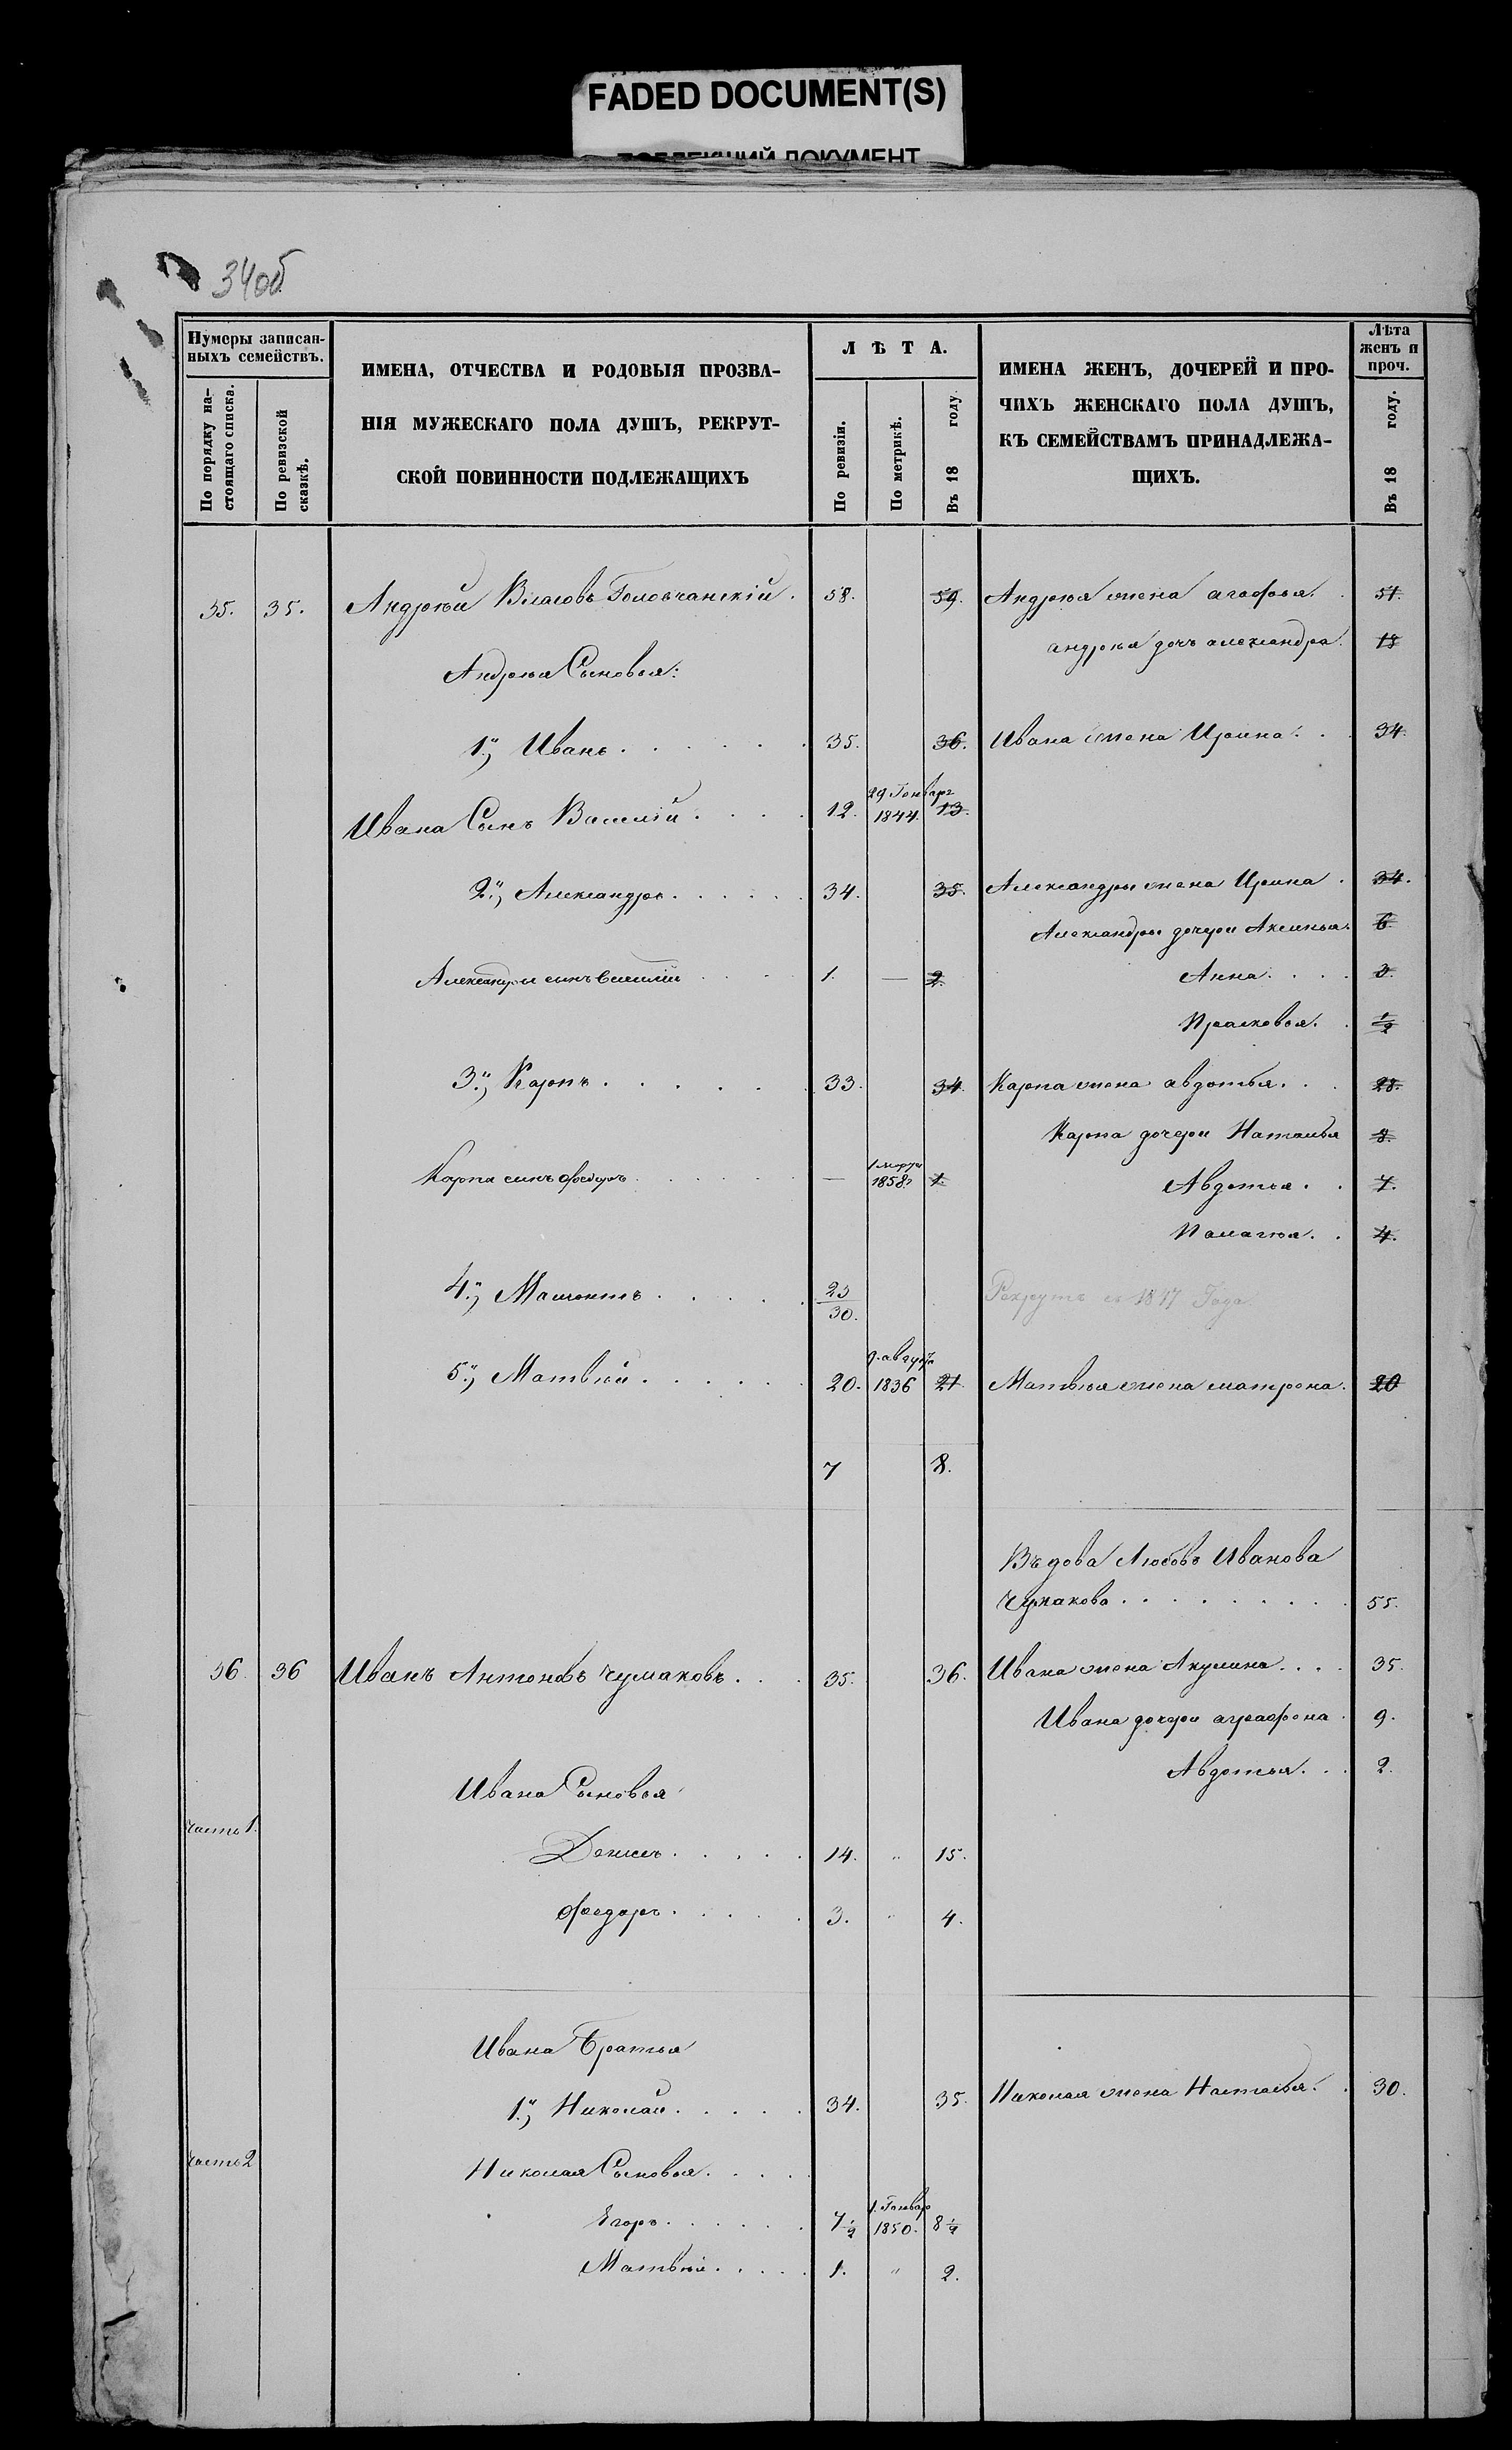 FADED DOCUMENT(S)
34об
Нумеры записан-
ныхъ семействъ.
По порядку на-
стоящаго списка.
По ревизской
сказкѣ.
ИМЕНА, ОТЧЕСТВА И РОДОВЫЯ ПРОЗВА-
НІЯ МУЖЕСКАГО ПОЛА ДУШЪ, РЕКРУТ-
СКОЙ ПОВИННОСТИ ПОДЛЕЖАЩИХЪ
ЛѢТА.
По ревизіи.
По метрикѣ.
Въ 18 году.
ИМЕНА ЖЕНЪ, ДОЧЕРЕЙ И ПРО-
ЧИХЪ ЖЕНСКАГО ПОЛА ДУШЪ,
КЪ СЕМЕЙСТВАМЪ ПРИНАДЛЕЖА-
ЩИХЪ.
Лѣта
женъ и
проч.
Въ 18 году.
35. 35. Андрѣй Власовъ Головчанскій. 58. 59. Андрѣя жена агафья. 51.
андрѣя дочь александра. 18
Андрѣя Сыновья:
1., Иванъ 35. 36. Ивана жена Ирина. 34.
29 Генваря
Ивана Сынъ Василій 12. 1844. 13.
2., Александръ 34. 35. Александры жена Ирина 34.
Александры дочери Аксинья 6.
Александры сынъ Василій 1. — 2. Анна 3.
Прасковья. 1/2
3., Карпъ 33. 34. Карпа жена авдотья 28.
Карпа дочери Наталья 8.
1 марта
Карпа сынъ Федоръ — 1858 1. Авдотья 7.
Палагея 4.
4., 23/30. Рекрутъ съ 1847 Года.
9. августа
5., Матвѣй 20. 1836 21. Матвѣя жена матрена. 20
7 8.
Въдова Любовь Иванова
Чумакова 55.
36. 36 Иванъ Антоновъ Чумаковъ 35. 36. Ивана жена Акулина 35.
Ивана дочери аграфена 9.
Авдотья 2.
Ивана Сыновья
часть 1.
Денисъ 14. " 15.
Федоръ 3. " 4.
Ивана Братья
1., Николай 34. 35. Николая жена Наталья. 30.
часть 2
Николая Сыновья
1. Генвар
Егоръ 7 1/2 1850. 8 1/2
Матвѣй 1. " 2.